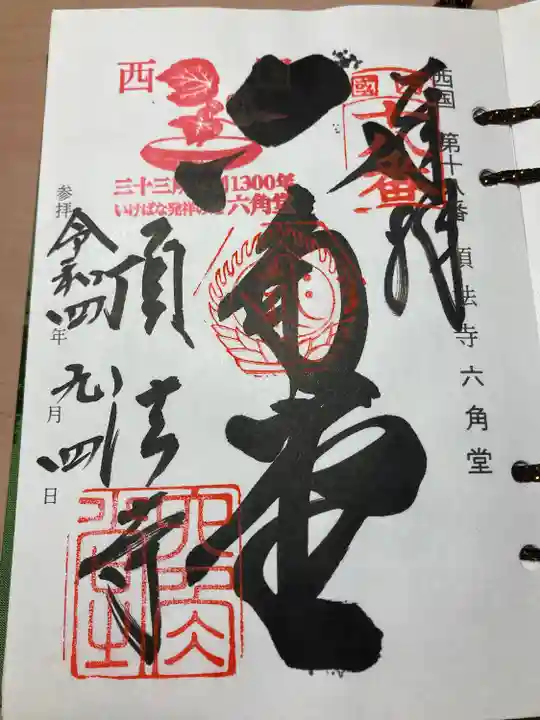 西国 第十八番 頂法寺六角堂
奉拝
六角堂
西
三十三所 1300年
いけばな発祥の 六角堂
頂法寺
参拝 令和四年九月四日